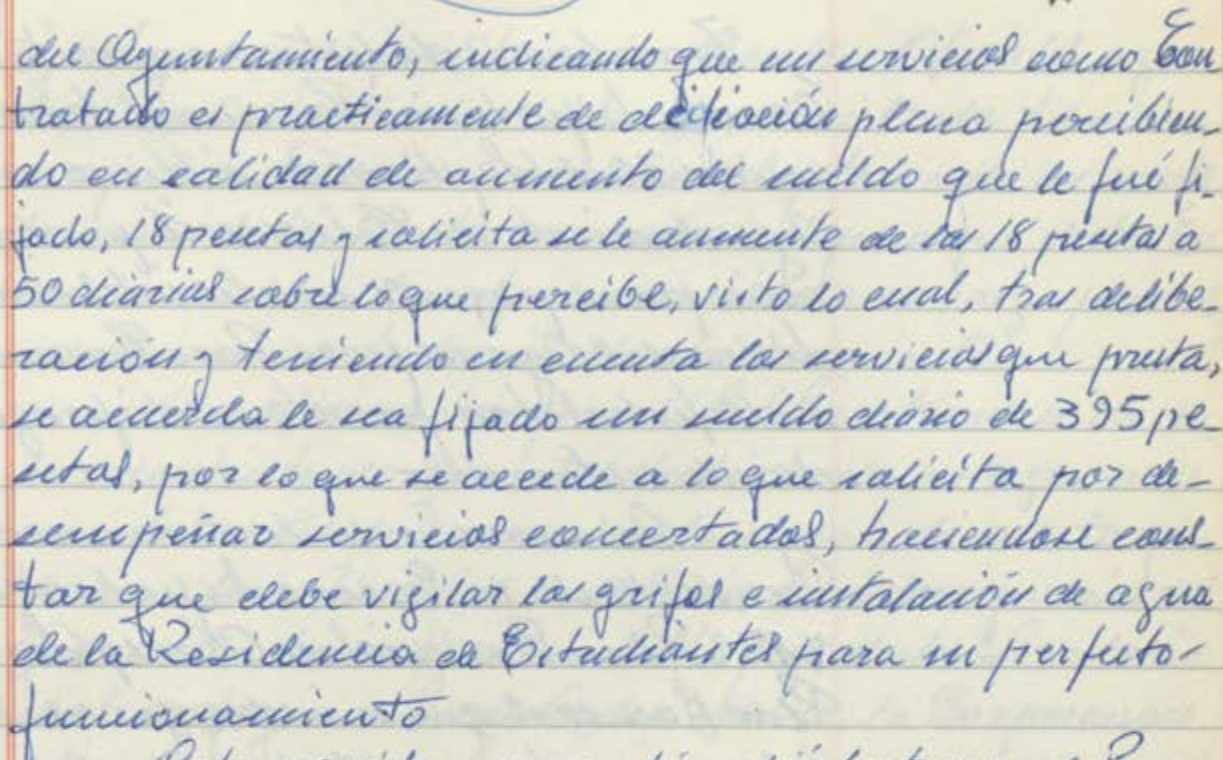 del Ayuntamiento, indicando que sus servicios como Con
tratado es practicamente de dedicación plena percibien-
do en calidad de aumento del sueldo que le fué fi-
jado, 18 pesetas y solicita se le aumente de las 18 pesetas a
50 diárias sobre lo que percibe, visto lo cual, tras delibe-
ración y teniendo en cuenta los servicios que presta,
se acuerda le sea fijado un sueldo diário de 395 pe-
setas, por lo que se accede a lo que solicita por de-
sempeñar servicios concertados, haciendose cons-
tar que debe vigilar los grifos e instalación de agua
de la Residencia de Estudiantes para su perfecto
funcionamiento